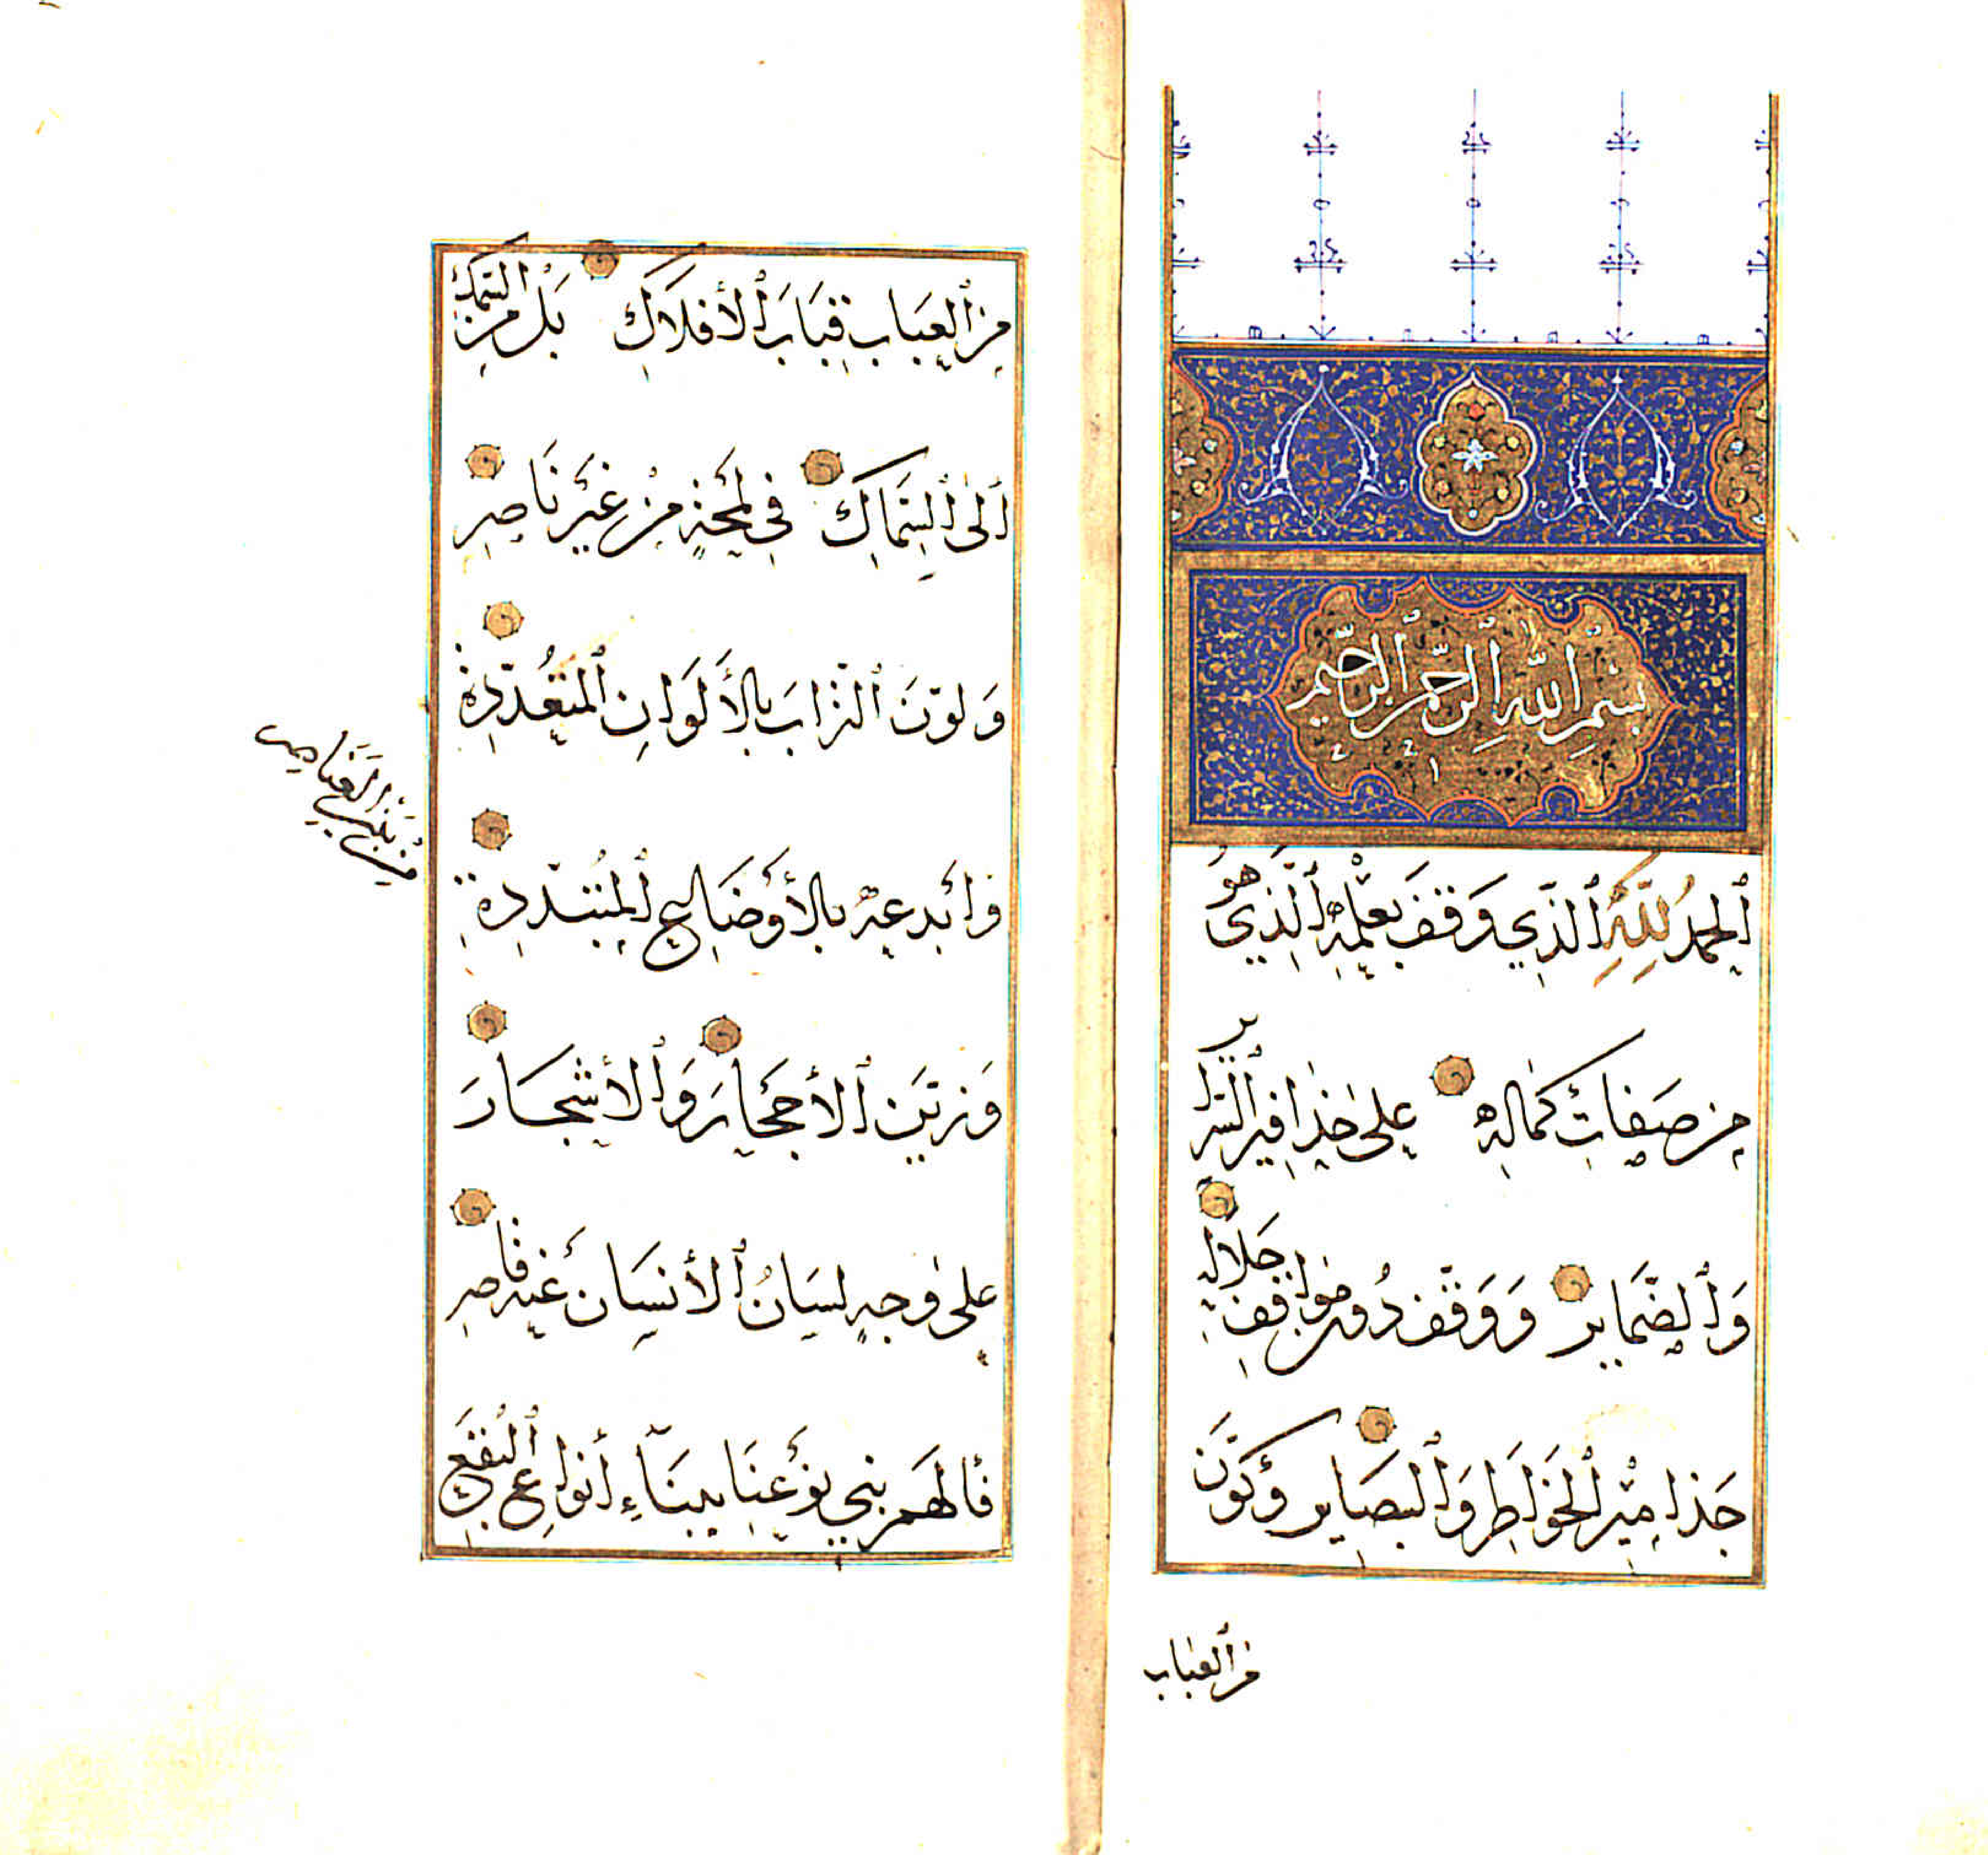 بسم الله الرحمن الرحيم
الحمد لله الذي وقف بعلمه الذي هو
من صفات كماله على حذافير السرائر
والضماير ووقف دون مواقف جلاله
جذامير الخواطر والبصاير وكون
من العباب
من العباب قباب الأفلاك بل من السمك
الى السماك في لمحة من غير ناصر
ولون التراب بالألوان المتعددة
وابدعه بالأوضاع المتبددة
من بين العناصر
وزين الأحجار والأشجار
على وجه لسان الأنسان عنه قاصر
فألهم بني نوعنا ببناء أنواع البقع